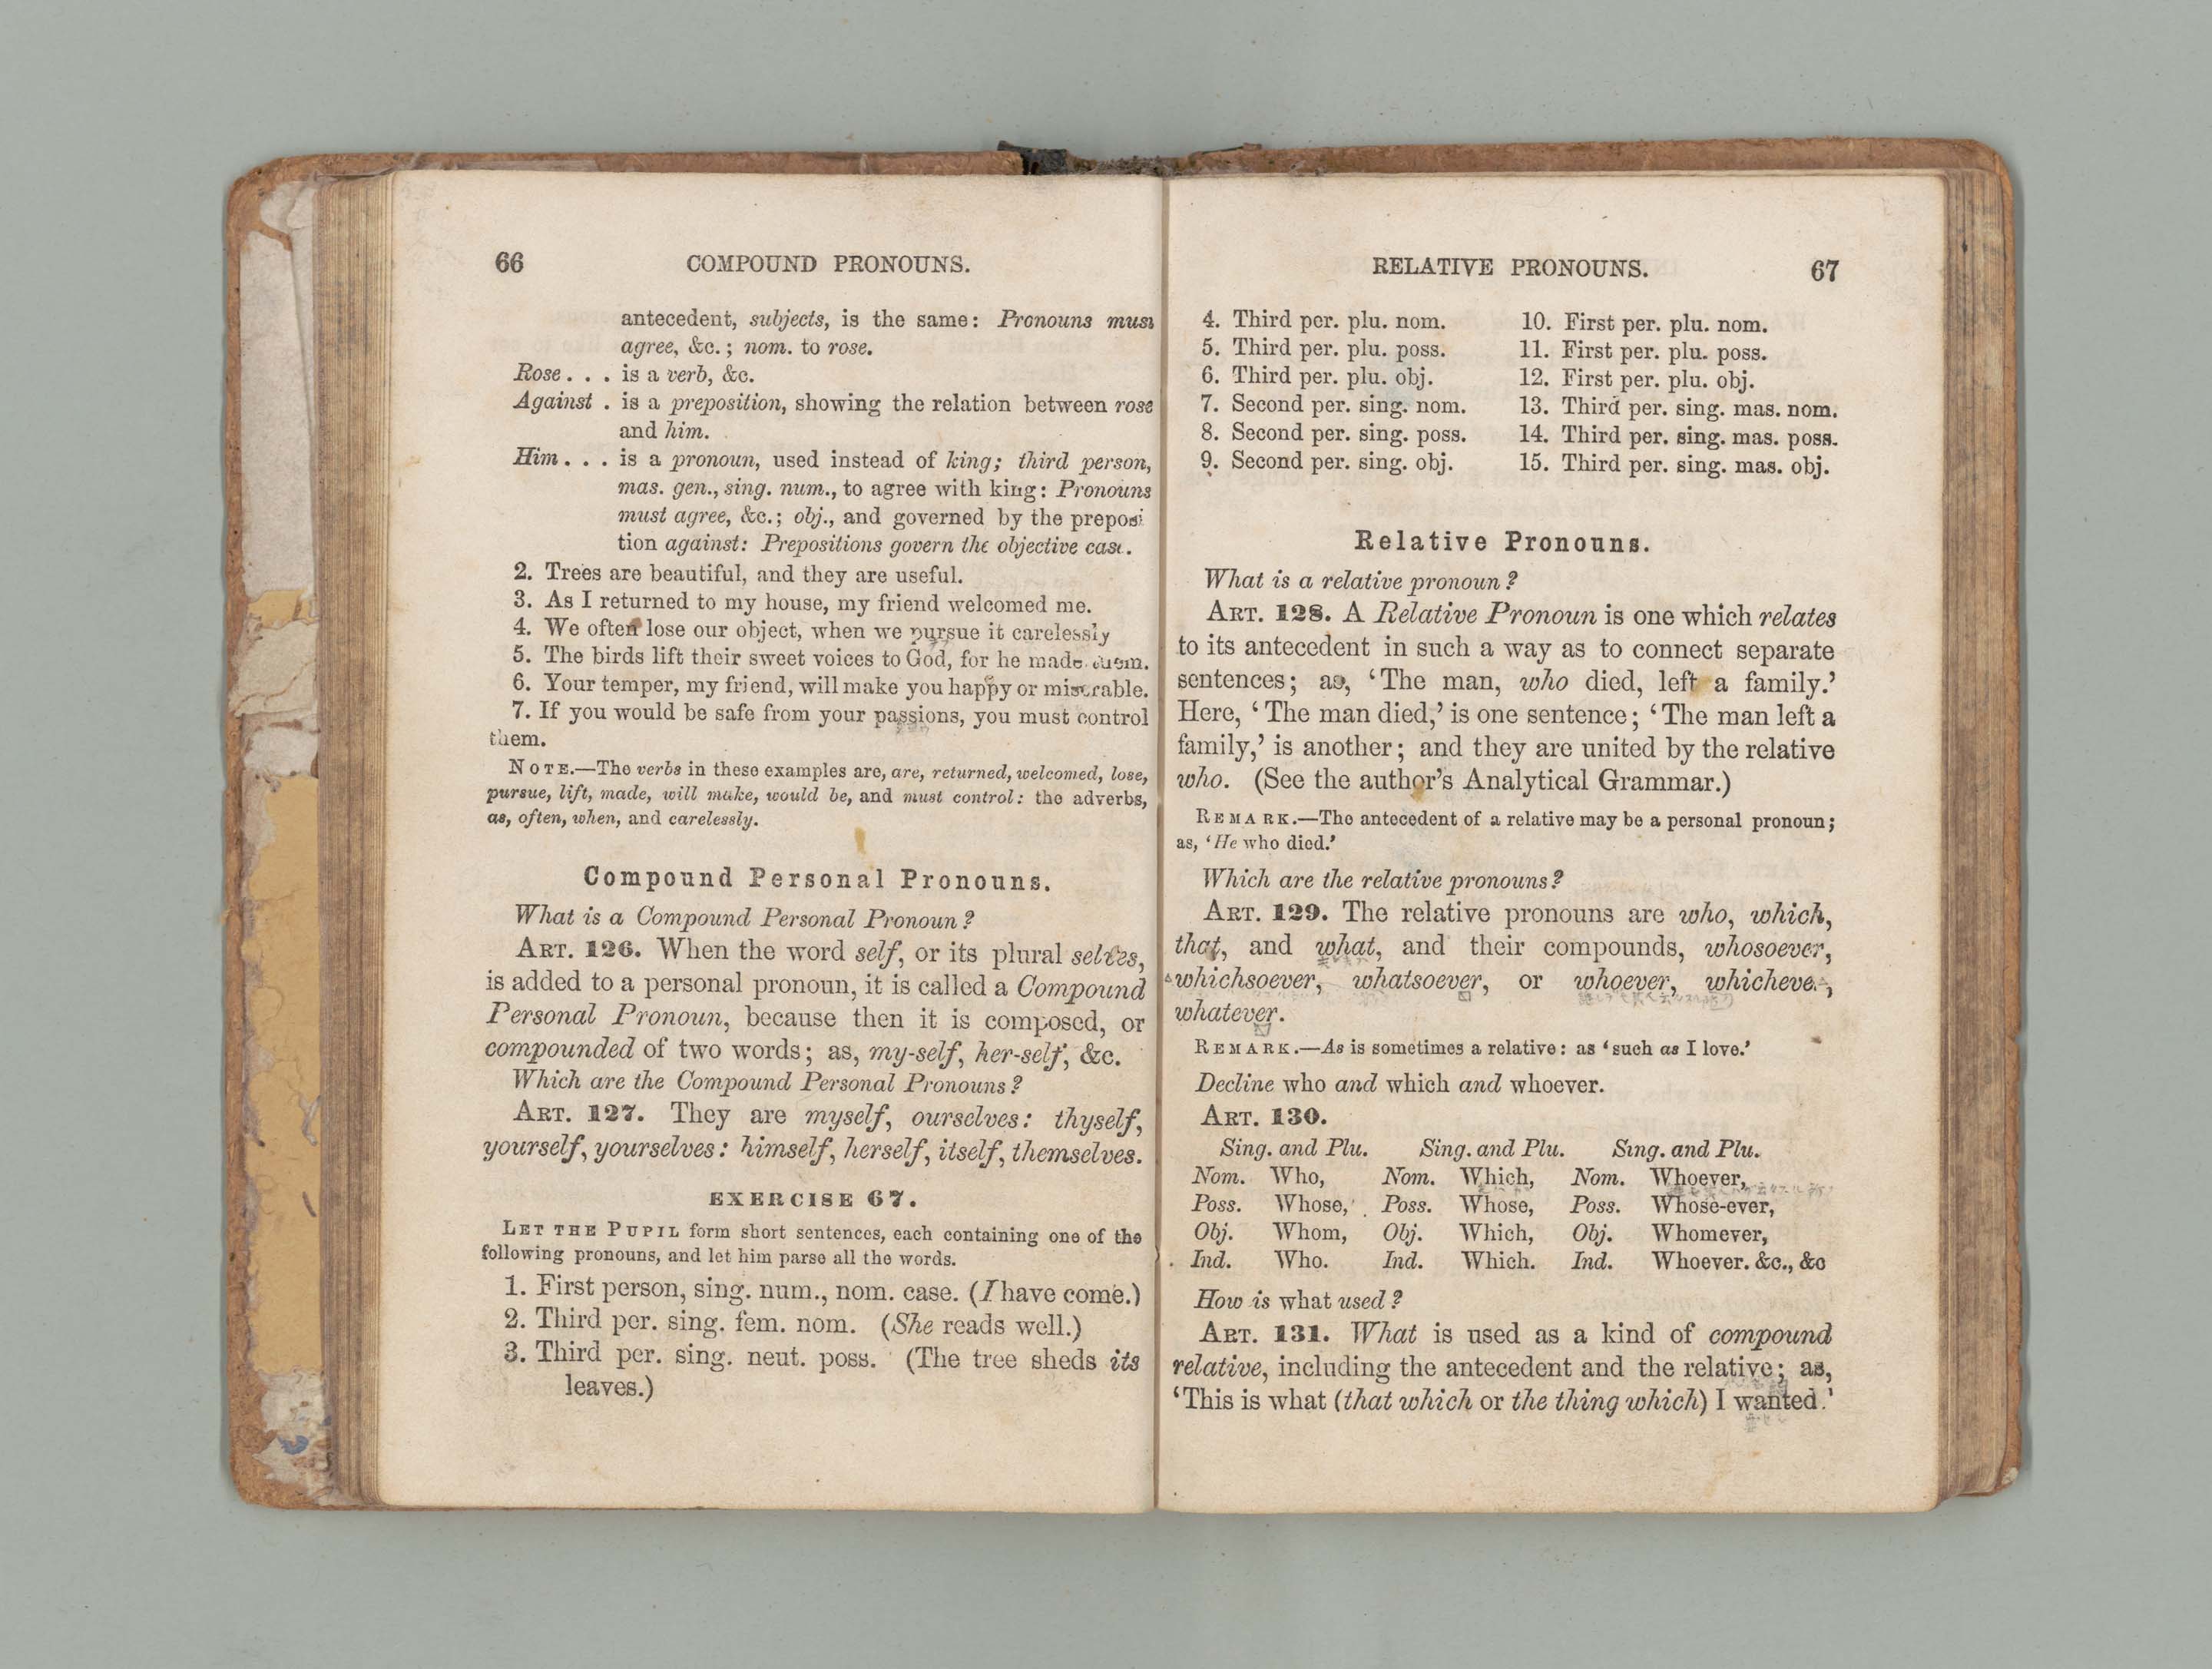 66 COMPOUND PRONOUNS.
antecedent, subjects, is the same: Pronouns must
agree, &c.; nom. to rose.
Rose . . . is a verb, &c.
Against . is a preposition, showing the relation between rose
and him.
Him . . . is a pronoun, used instead of king; third person,
mas. gen., sing. num., to agree with king: Pronouns
must agree, &c.; obj., and governed by the preposi
tion against: Prepositions govern the objective case.
2. Trees are beautiful, and they are useful.
3. As I returned to my house, my friend welcomed me.
4. We often lose our object, when we pursue it carelessly
5. The birds lift their sweet voices to God, for he made them.
6. Your temper, my friend, will make you happy or miserable.
7. If you would be safe from your passions, you must control
them.
NOTE.—The verbs in these examples are, are, returned, welcomed, lose,
pursue, lift, made, will make, would be, and must control: the adverbs,
as, often, when, and carelessly.
Compound Personal Pronouns.
What is a Compound Personal Pronoun?
ART. 126. When the word self, or its plural selves,
is added to a personal pronoun, it is called a Compound
Personal Pronoun, because then it is composed, or
compounded of two words; as, my-self, her-self, &c.
Which are the Compound Personal Pronouns?
ART. 127. They are myself, ourselves: thyself,
yourself, yourselves: himself, herself, itself, themselves.
EXERCISE 67.
LET THE PUPIL form short sentences, each containing one of the
following pronouns, and let him parse all the words.
1. First person, sing. num., nom. case. (I have come.)
2. Third per. sing. fem. nom. (She reads well.)
3. Third per. sing. neut. poss. (The tree sheds its
leaves.)
RELATIVE PRONOUNS. 67
4. Third per. plu. nom.
5. Third per. plu. poss.
6. Third per. plu. obj.
7. Second per. sing. nom.
8. Second per. sing. poss.
9. Second per. sing. obj.
10. First per. plu. nom.
11. First per. plu. poss.
12. First per. plu. obj.
13. Third per. sing. mas. nom.
14. Third per. sing. mas. poss.
15. Third per. sing. mas. obj.
Relative Pronouns.
What is a relative pronoun?
ART. 128. A Relative Pronoun is one which relates
to its antecedent in such a way as to connect separate
sentences; as, ‘The man, who died, left a family.’
Here, ‘The man died,’ is one sentence; ‘The man left a
family,’ is another; and they are united by the relative
who. (See the author’s Analytical Grammar.)
REMARK.—The antecedent of a relative may be a personal pronoun;
as, ‘He who died.’
Which are the relative pronouns?
ART. 129. The relative pronouns are who, which,
that, and what, and their compounds, whosoever,
whichsoever, whatsoever, or whoever, whichever,
whatever.
REMARK.—As is sometimes a relative: as ‘such as I love.’
Decline who and which and whoever.
ART. 130.
Sing. and Plu. Sing. and Plu. Sing. and Plu.
Nom. Who, Nom. Which, Nom. Whoever,
Poss. Whose, Poss. Whose, Poss. Whose-ever,
Obj. Whom, Obj. Which, Obj. Whomever,
Ind. Who. Ind. Which. Ind. Whoever. &c., &c
How is what used?
ART. 131. What is used as a kind of compound
relative, including the antecedent and the relative; as,
‘This is what (that which or the thing which) I wanted.’